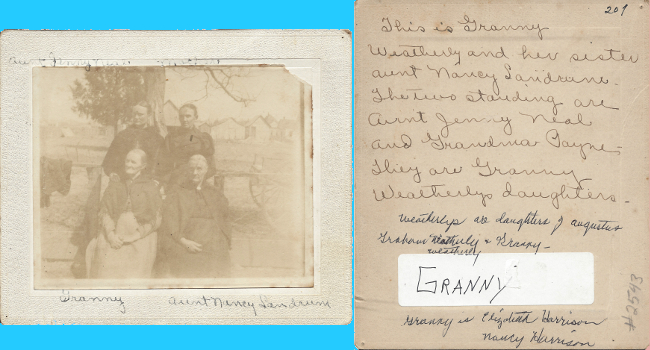 Aunt Jenny Neal
Granny Aunt Nancy Landrum
201
This is Granny
Weatherly and her sister
aunt Nancy Landrum.
The two standing are
Aunt Jenny Neal
and Grandma Payne.
They are Granny
Weatherlys daughters.
Weatherlys are daughters of augustus
Graham Weatherly & Granny-
Weatherly
GRANNY
Granny is Elizabeth Harrison
Nancy Harrison
#2543